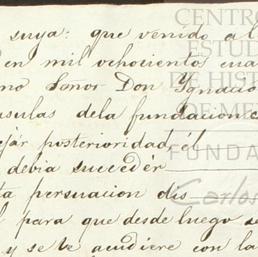 suya: que venido al
en mil ochocientos cua
mo Señor Don Ygnacio
usulas dela fundacion c
ejár posterioridad, él
debia succedér
ta persuacion dis
l para que desde luego se
y se le acudiere con la
CENTRO
ESTU
DE HIST
DE ME
FUNDA
Carlos